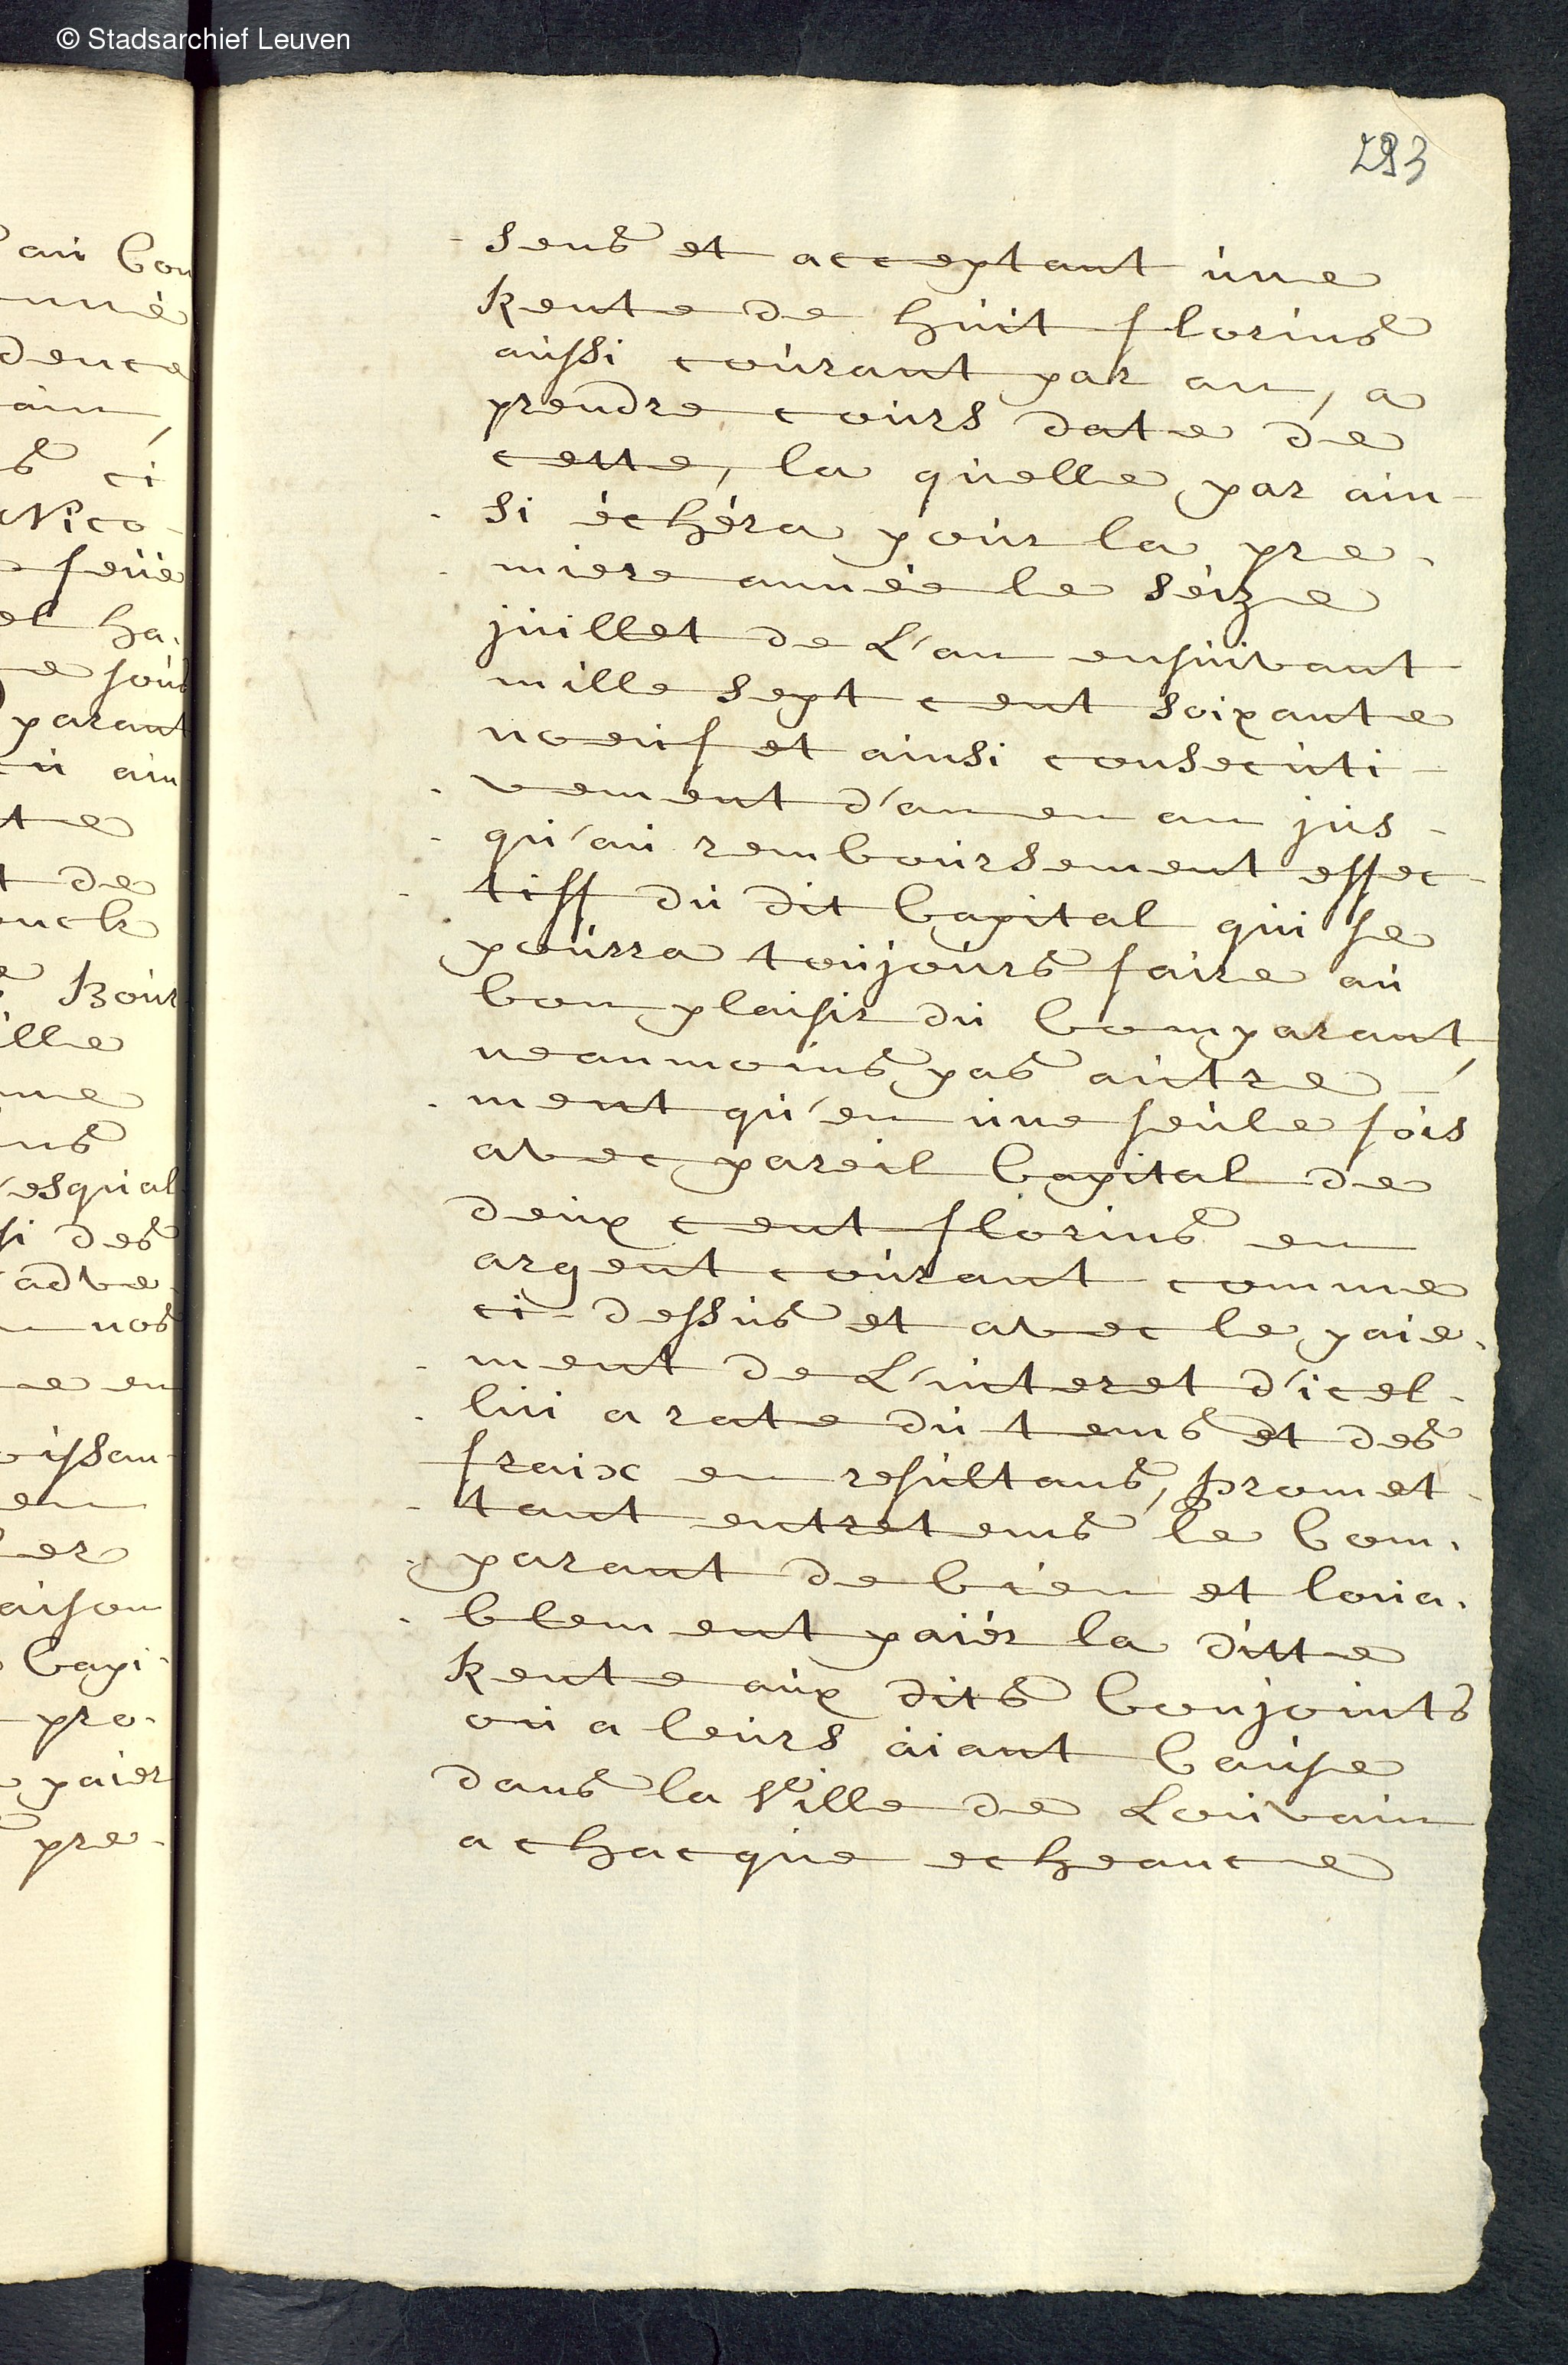 © Stadsarchief Leuven
293
sens et acceptant une
Rente de huit florins
aussi courant par an, a
prendre cours date de
cette, la quelle par ain-
si échéra pour la pre-
miere année le séize
juillet de L'an ensuivant
mille sept cent soixante
noeuf et ainsi consecuti-
vement d'an en an jus-
qu'au remboursement effec-
tiff du dit Capital qui se
pourra toujours faire au
bon plaisir du Comparant,
neanmoins pas autre-
ment qu'en une seule fois
avec pareil Capital de
deux cent florins en
argent courant comme
ci-dessus et avec le paie-
ment de L'interet d'icel-
lui a rate du tems et des
fraix en resultans, promet-
tant entretems le Com-
parant de bien et loua-
blement païer la ditte
Rente aux dits Conjoints
ou a leurs aiant Cause
dans la Ville de Louvain
a chacque echeance